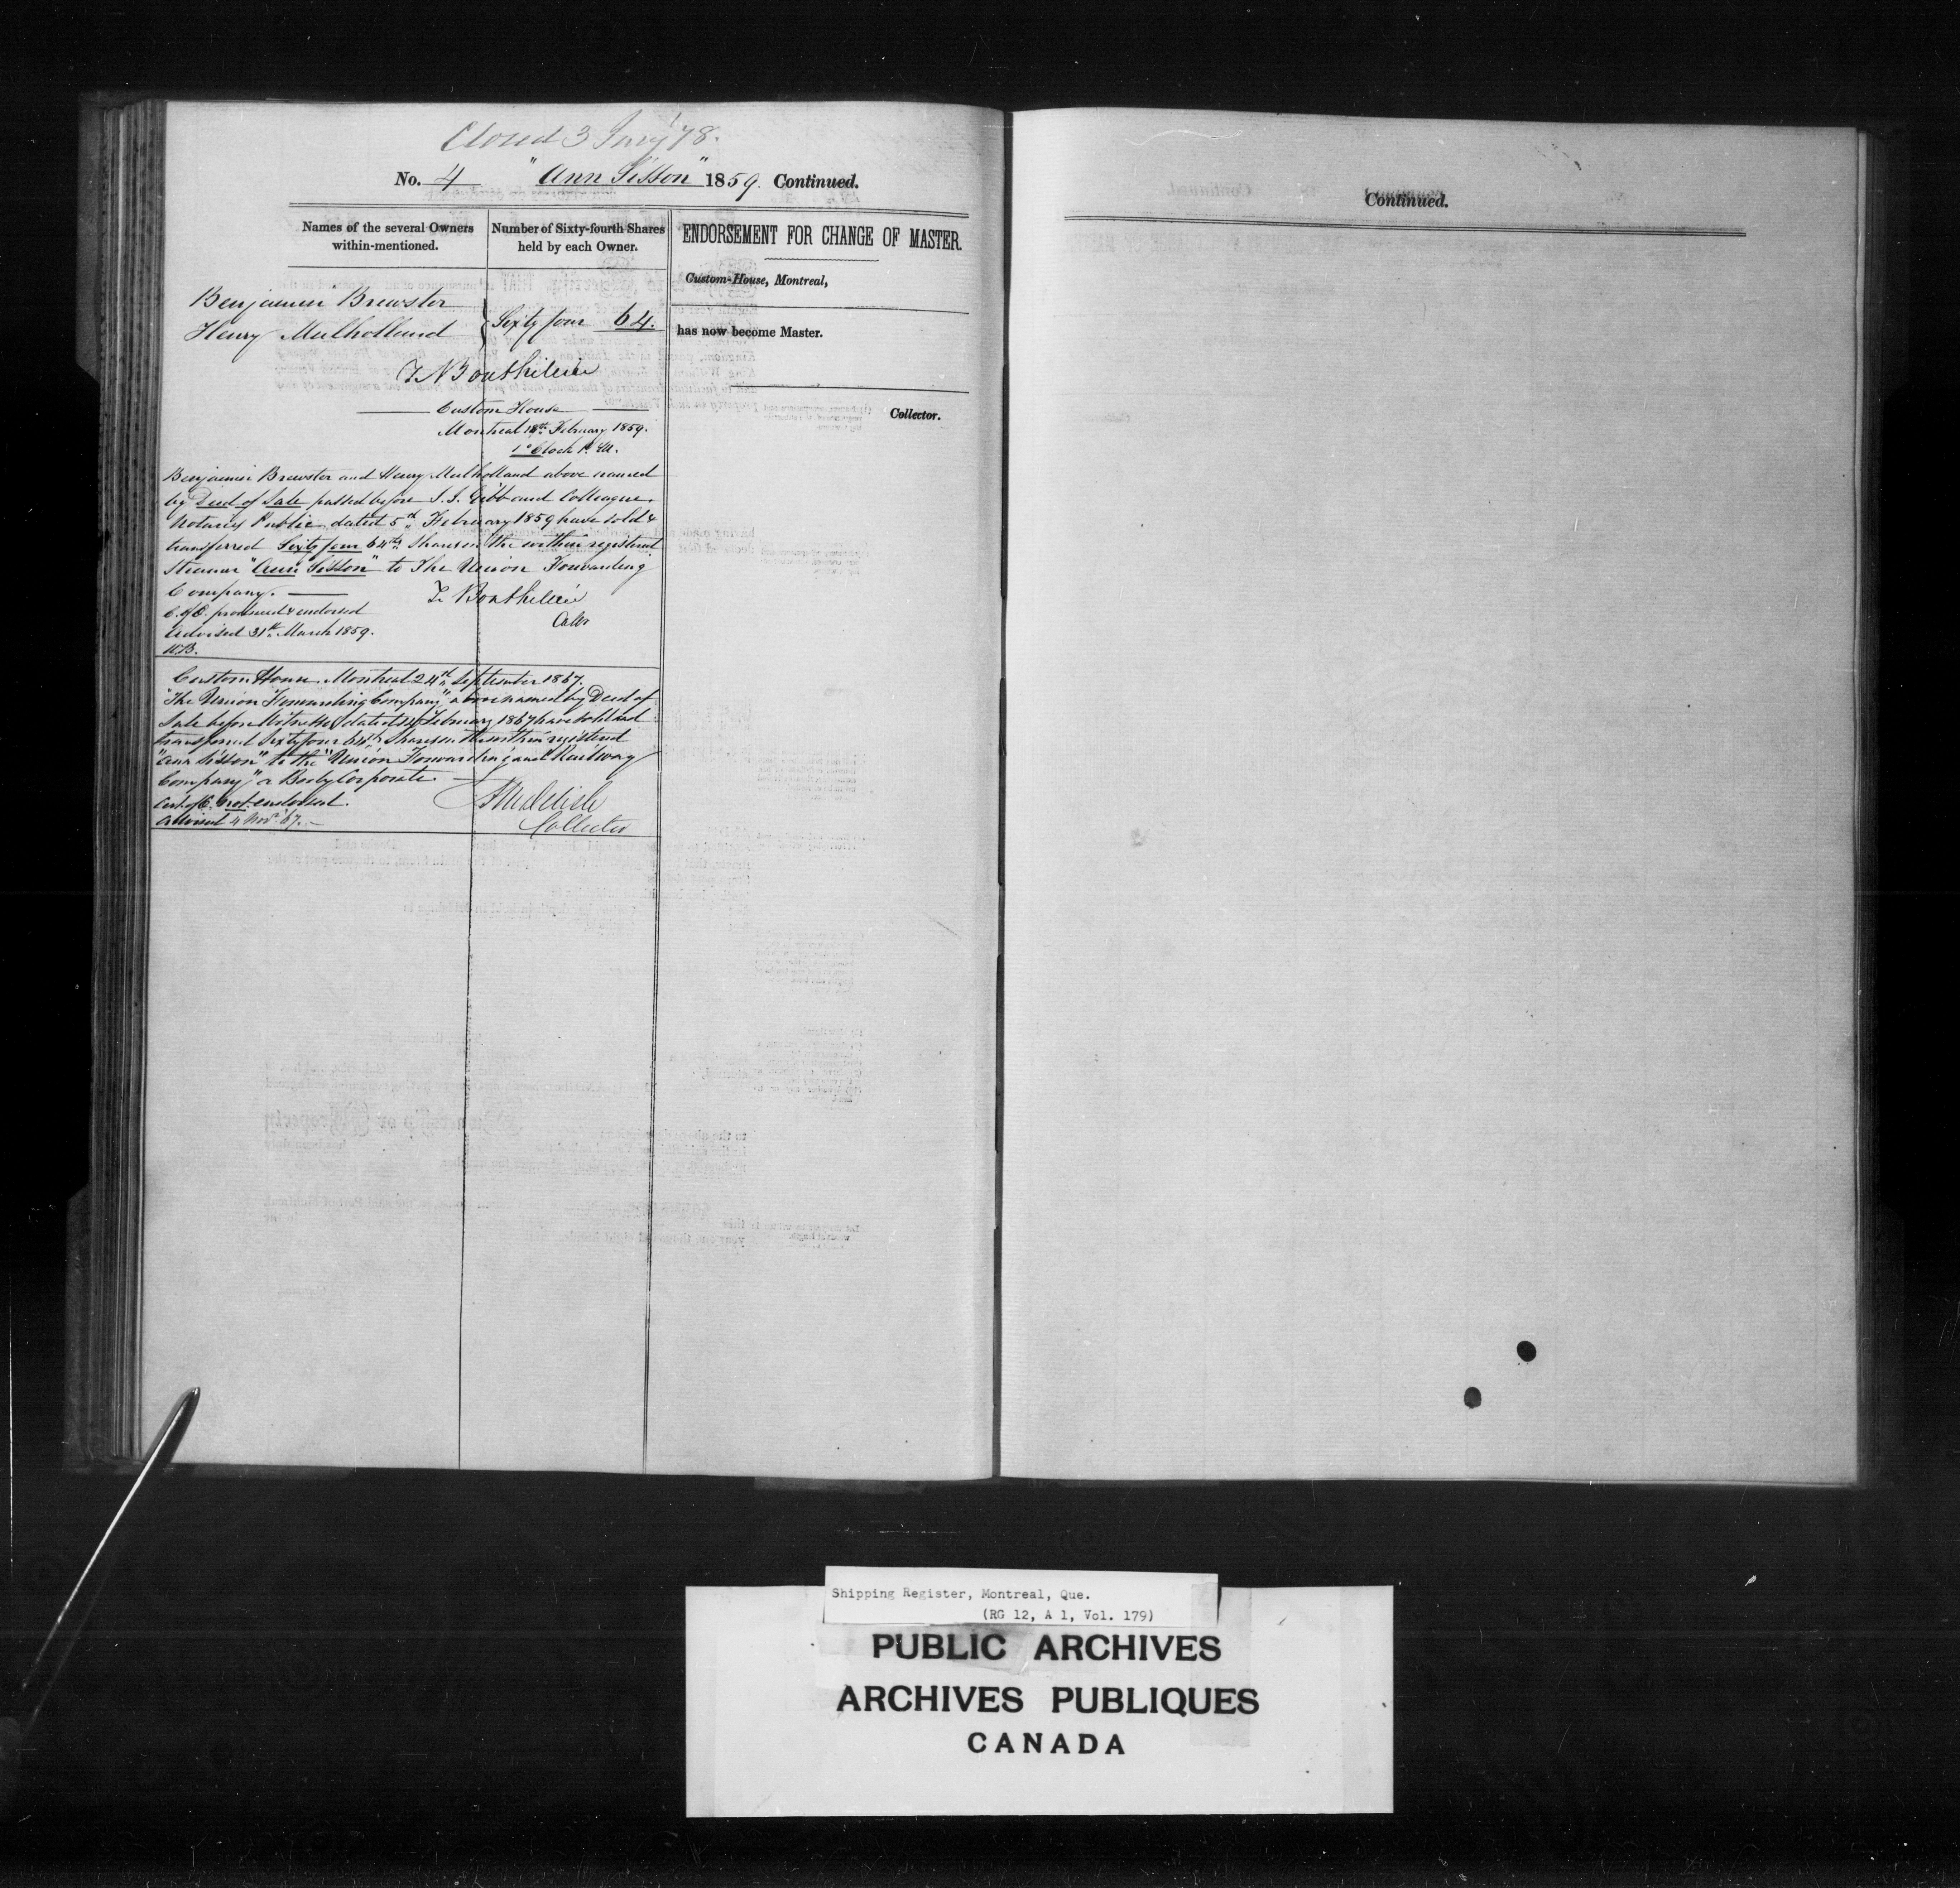 Closed 3 Jany '78.
No. 4 "Ann Sisson" 1859. Continued.
Names of the several Owners within-mentioned.
Number of Sixty-fourth Shares held by each Owner.
Benjamin Brewster
Henry Mulholland
Sixty four 64.
Custom House
Montreal 18th February 1859.
1 o'Clock P.M.
Benjamin Brewster and Henry Mulholland above named
by Deed of Sale passed before I.J. Gibb and Colleague.
Notaries Public, dated 5th February 1859 have sold &
transferred Sixty four 64ths Shares in the within registered
Steamer "Ann Sisson" to The Union Forwarding
Company.
C. of O. produced & endorsed
Advised 31st March 1859.
Custom House Montreal 24th September 1867.
"The Union Forwarding Company" above named by Deed of
Sale before Witness dated February 1867 have sold and
transferred Sixty four 64ths Shares in the within registered
"Ann Sisson" to the "Union Forwarding and Railway
Company" a Body Corporate.
Cert. of O. not endorsed.
Advised 4 Nov. '67.
Collector
ENDORSEMENT FOR CHANGE OF MASTER.
Custom-House, Montreal,
has now become Master.
Collector.
Continued.
Shipping Register, Montreal, Que.
(RG 12, A 1, Vol. 179)
PUBLIC ARCHIVES
ARCHIVES PUBLIQUES
CANADA